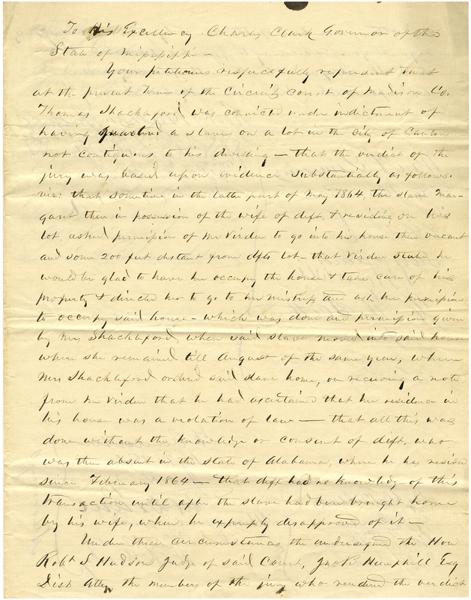 To His Excellency Charles Clark Governor of the
State of Mississippi —
Your petitioners respectfully represent that
at the present term of the Circuit Court of Madison Co.
Thomas Shackleford was convicted under indictment of
having a slave on a lot in the City of Canton
not contiguous to his dwelling — that the verdict of the
jury was based upon evidence substantially as follows
viz: that sometime in the latter part of May 1864 the slave Mar-
garet then in possession of the wife of deft. & residing on his
lot, asked permission of Mr Virden to go into his house then vacant
and some 200 feet distant from defts lot — that Virden stated he
would be glad to have her occupy the house & take care of his
property & directed her to go to her mistress and ask her permission
to occupy said house — which was done and permission given
by Mrs. Shackleford, when said slave moved into said house
where she remained till August of the same year, when
Mrs Shackleford ordered said slave home, on receiving a note
from Mr Virden that he had ascertained that her residence in
his house was a violation of law — that all this was
done without the knowledge or consent of deft, who
was then absent in the State of Alabama, where he has resided
since February 1864 — that deft had no knowledge of this
transaction until after the slave had been brought home
by his wife, when he expressly disapproved of it —
Under these circumstances the undersigned the Hon
Robt S Hudson Judge of said Court, Hemphill Esq
Dist Atty, the members of the jury who rendered the verdict